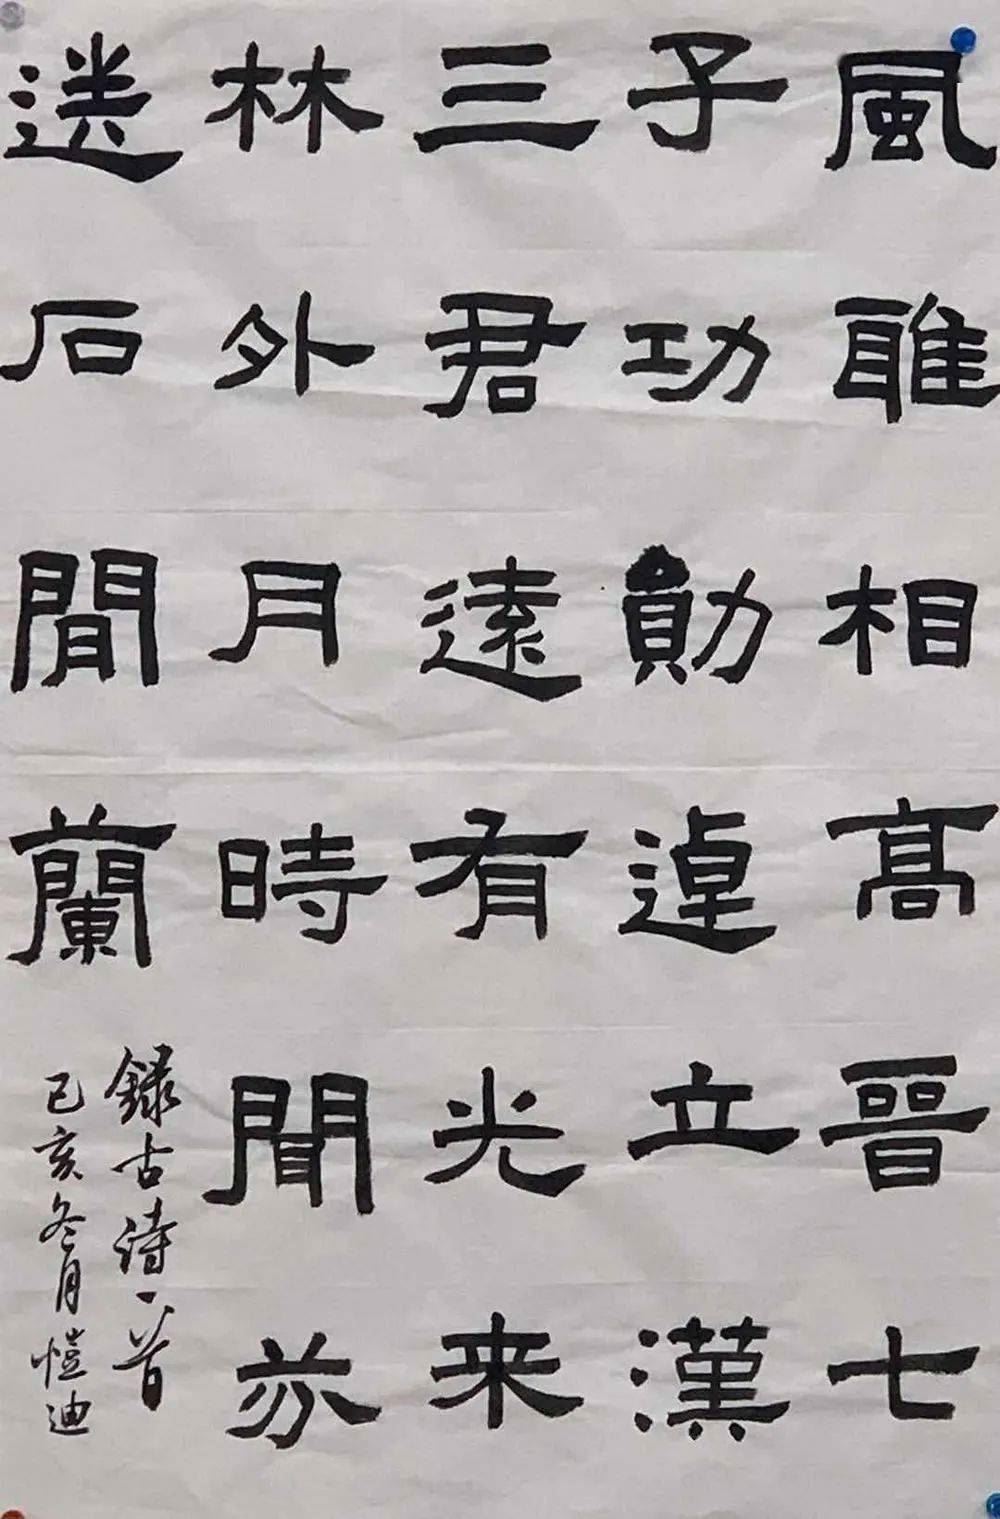 風雅相高晉七
子功勛逴立漢
三君遠有光来
林外月時聞亦
送石間蘭
録古詩一首
己亥冬月愷迪